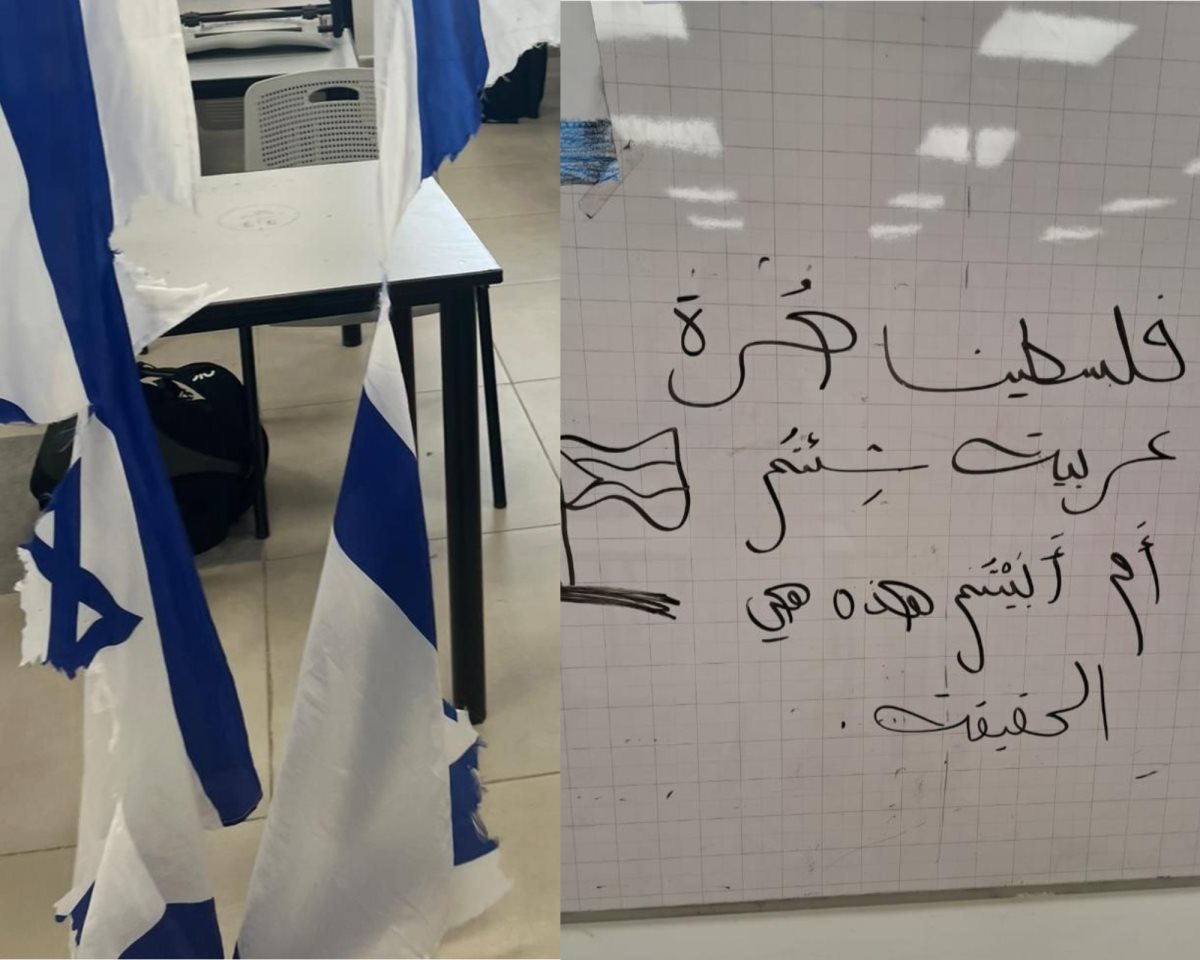 فلسطين حُرة
عربية شِئتُم
أَم أَبَيْتُم هذه هي
الحقيقة.